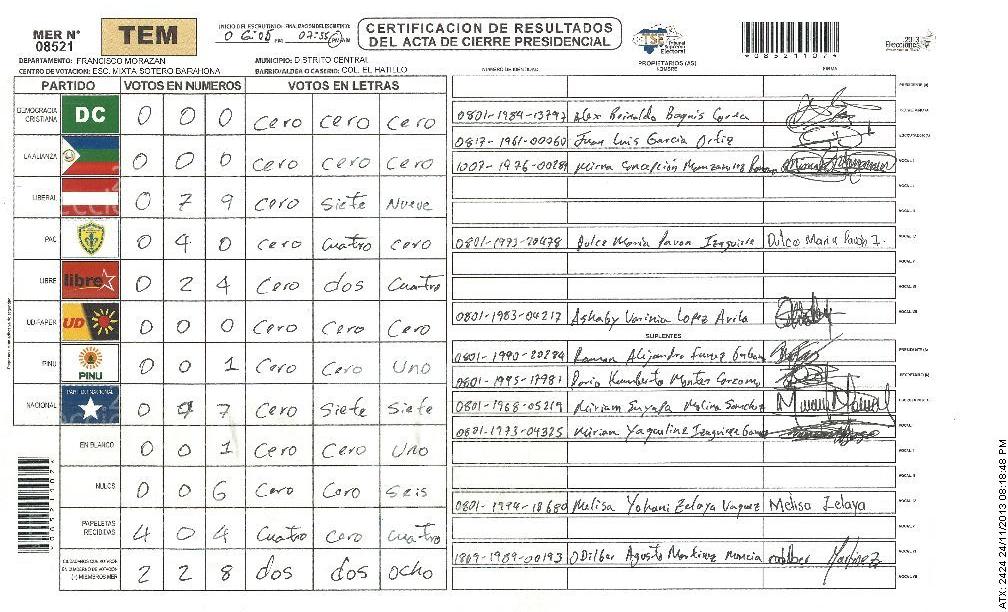 MER N° 08521
TEM
INICIO DEL ESCRUTINIO: FINALIZACION DEL ESCRUTINIO:
07:55
CERTIFICACION DE RESULTADOS
DEL ACTA DE CIERRE PRESIDENCIAL
TSE Tribunal Supremo Electoral
Elecciones
085211074
DEPARTAMENTO: FRANCISCO MORAZAN
MUNICIPIO: DISTRITO CENTRAL
CENTRO DE VOTACION: ESC. MIXTA SOTERO BARAHONA
BARRIO/ALDEA O CASERIO: COL. EL HATILLO
NUMERO DE IDENTIDAD PROPIETARIOS (AS) NOMBRE FIRMA
PARTIDO VOTOS EN NUMEROS VOTOS EN LETRAS
DEMOCRACIA CRISTIANA DC 0 0 0 Cero cero Cero
LA ALIANZA 0 0 0 Cero cero Cero
LIBERAL 0 7 9 Cero Siete Nueve
PAC 0 4 0 Cero cuatro cero
LIBRE libre 0 2 4 Cero dos Cuatro
UD-FAPER UD 0 0 0 Cero Cero Cero
PINU PINU 0 0 1 Cero Cero Uno
NACIONAL PARTIDO NACIONAL 0 7 7 Cero Siete Siete
EN BLANCO 0 0 1 Cero Cero Uno
NULOS 0 0 6 Cero Cero Seis
PAPELETAS RECIBIDAS 4 0 4 Cuatro Cero cuatro
(+) MIEMBROS MER 2 2 8 dos dos ocho
PRESIDENTE (A)
0801-1984-13797 Alex Reinaldo
0817-1961-00060 Juan Luis Garcia Ortiz
1007-1976-00289 Mirna Concepción
0801-1993-20478 Dulce Maria Pavon Izaguirre Dulce Maria Pavon I.
0801-1983-04217 Ashaby Varinia Lopez Avila
SUPLENTES
PRESIDENTE (A)
0801-1990-20284 Ramon Alejandro
SECRETARIO (A)
0801-1995-17981 Dario Humberto
0801-1968-05219 Miriam Suyapa Molina Sanchez
0801-1973-04325 Mirian Yaqueline Izaguirre
0801-1994-18680 Melisa Yohani Zelaya Vaquez Melisa Zelaya
1809-1989-00193 ODilber Agusto Martinez Murcia
ATX: 2424 24/11/2013 08:18:48 PM